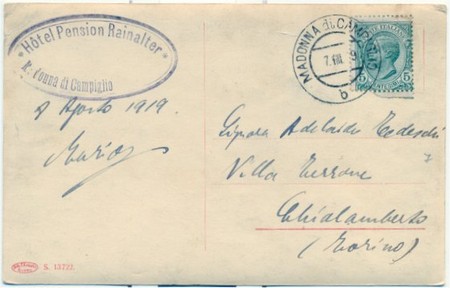 * Hôtel Pension Rainalter *
Madonna di Campiglio
9 Agosto 1919
Mario
MADONNA di CAMPIGLIO
7. VIII.
b
POSTE ITALIANE
5 5
Signora Adelaide Tedeschi
Villa Terrone
Chialamberto
(Torino)
S. 13722.